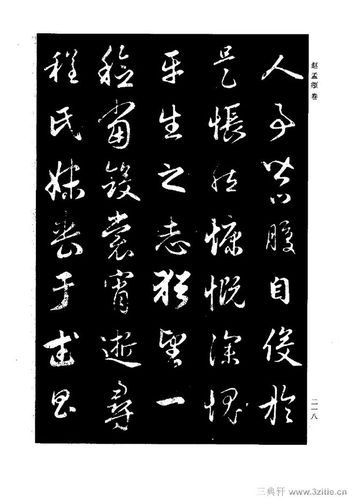 赵孟頫卷
人事皆口腹自役於
是悵然慷慨深愧
平生之志猶望一
稔當斂裳宵逝尋
程氏妹喪于武昌
二一八
三典轩 www.3zitie.cn